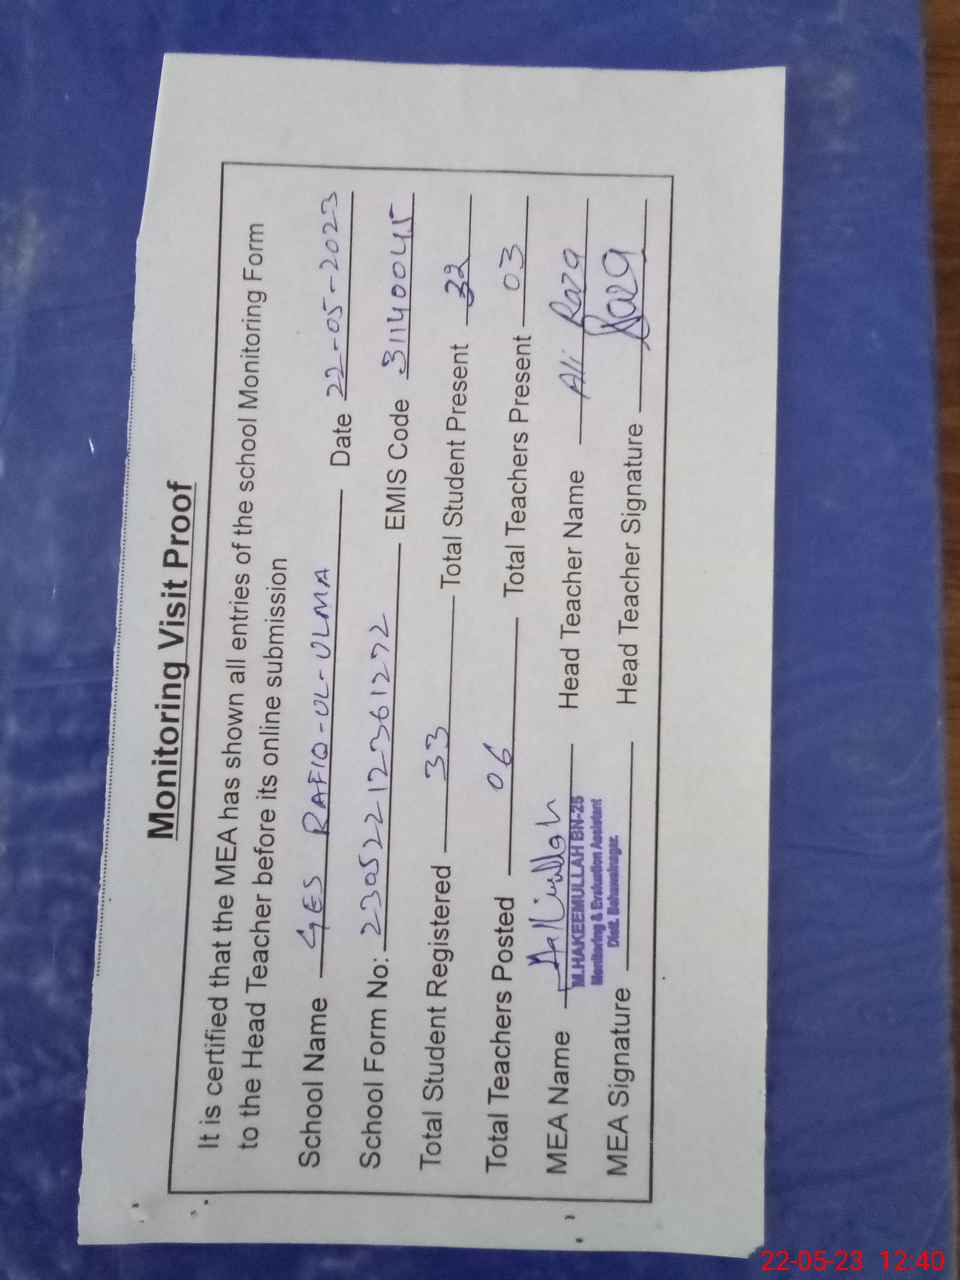 Monitoring Visit Proof
It is certified that the MEA has shown all entries of the school Monitoring Form
to the Head Teacher before its online submission
School Name GES RAFIQ-UL-ULMA Date 22-05-2023
School Form No: 230522121236 1272 EMIS Code 31140045
Total Student Registered 33 Total Student Present 32
Total Teachers Posted 06 Total Teachers Present 03
MEA Name Head Teacher Name Ali Raza
M.HAKEEMULLAH BN-25
Monitoring & Evaluation Assistant
Distt. Bahawalnagar.
MEA Signature Head Teacher Signature Raza
22-05-23 12:40